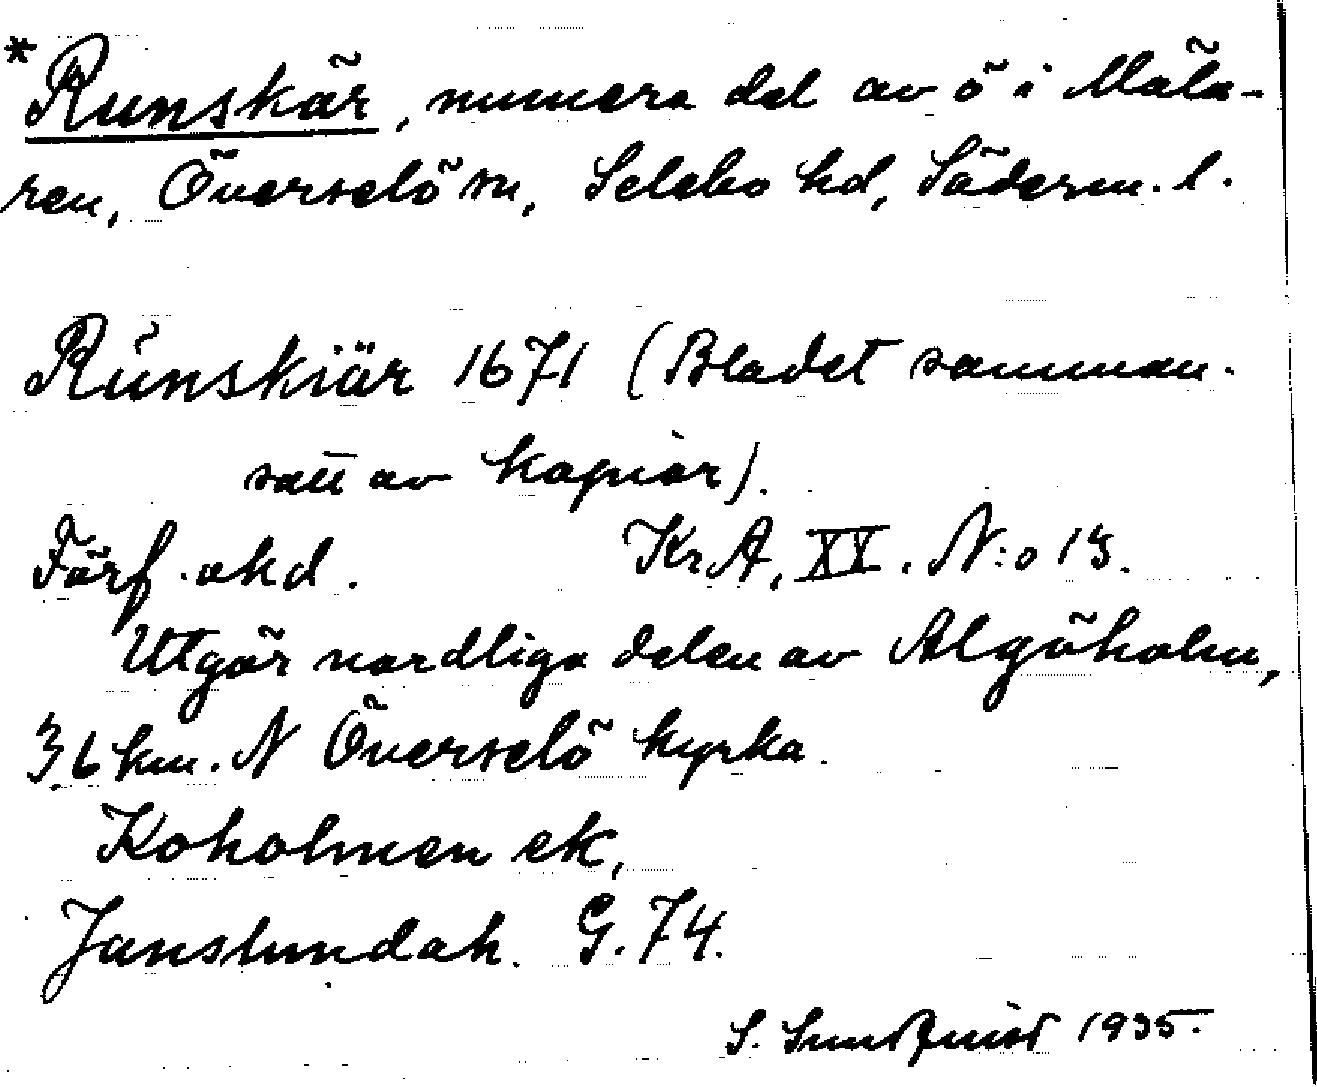 *Runskär, numera del av ö i Mäla-
ren, Överselö sn, Selebo hd, Söderm. l.
Runskiär 1671 (Bladet samman-
satt av kopior).
Förf. okd. KrA, XV. N:o 13.
Utgör nordliga delen av Algöholm,
3,6 km. N Överselö kyrka.
Koholmen ek,
Janslunda h. G. 74.
S. Sundquist 1935.